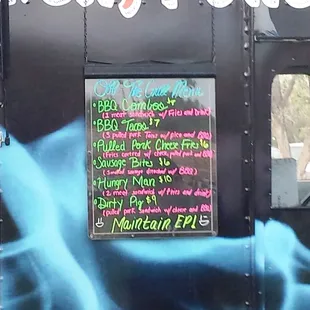 Off The Grid Menu
BBQ Combos
(2 meet sandwich w/ Fries and Drink)
BBQ Tacos $7
3 pulled pork Tacos w/ pico and BBQ)
Pulled Pork Cheese Fries $6
(Fries covered w/ cheese, pulled pork and BBQ)
Sausage Bites $6
BBQ)
Hungry Man $10
2 meet sandwich w/ Fries and drink)
Dirty Pig $9
(pulled pork Sandwich w/ cheese and BBQ)
Maintain EP!